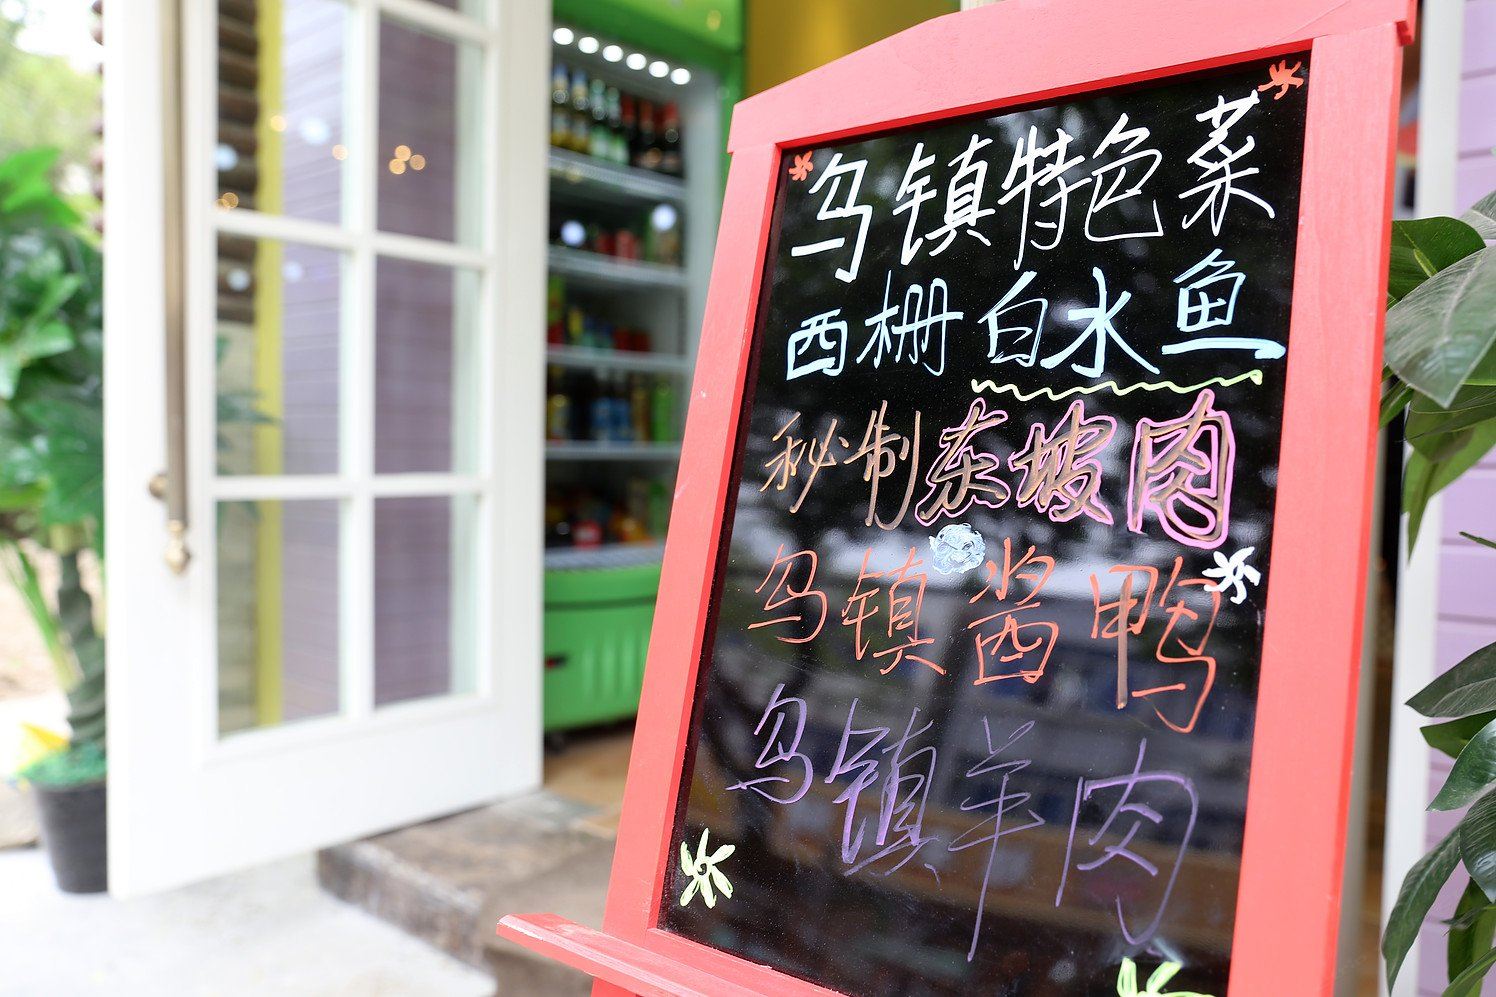 乌镇特色菜
西栅白水鱼
秘制东坡肉
乌镇酱鸭
乌镇羊肉